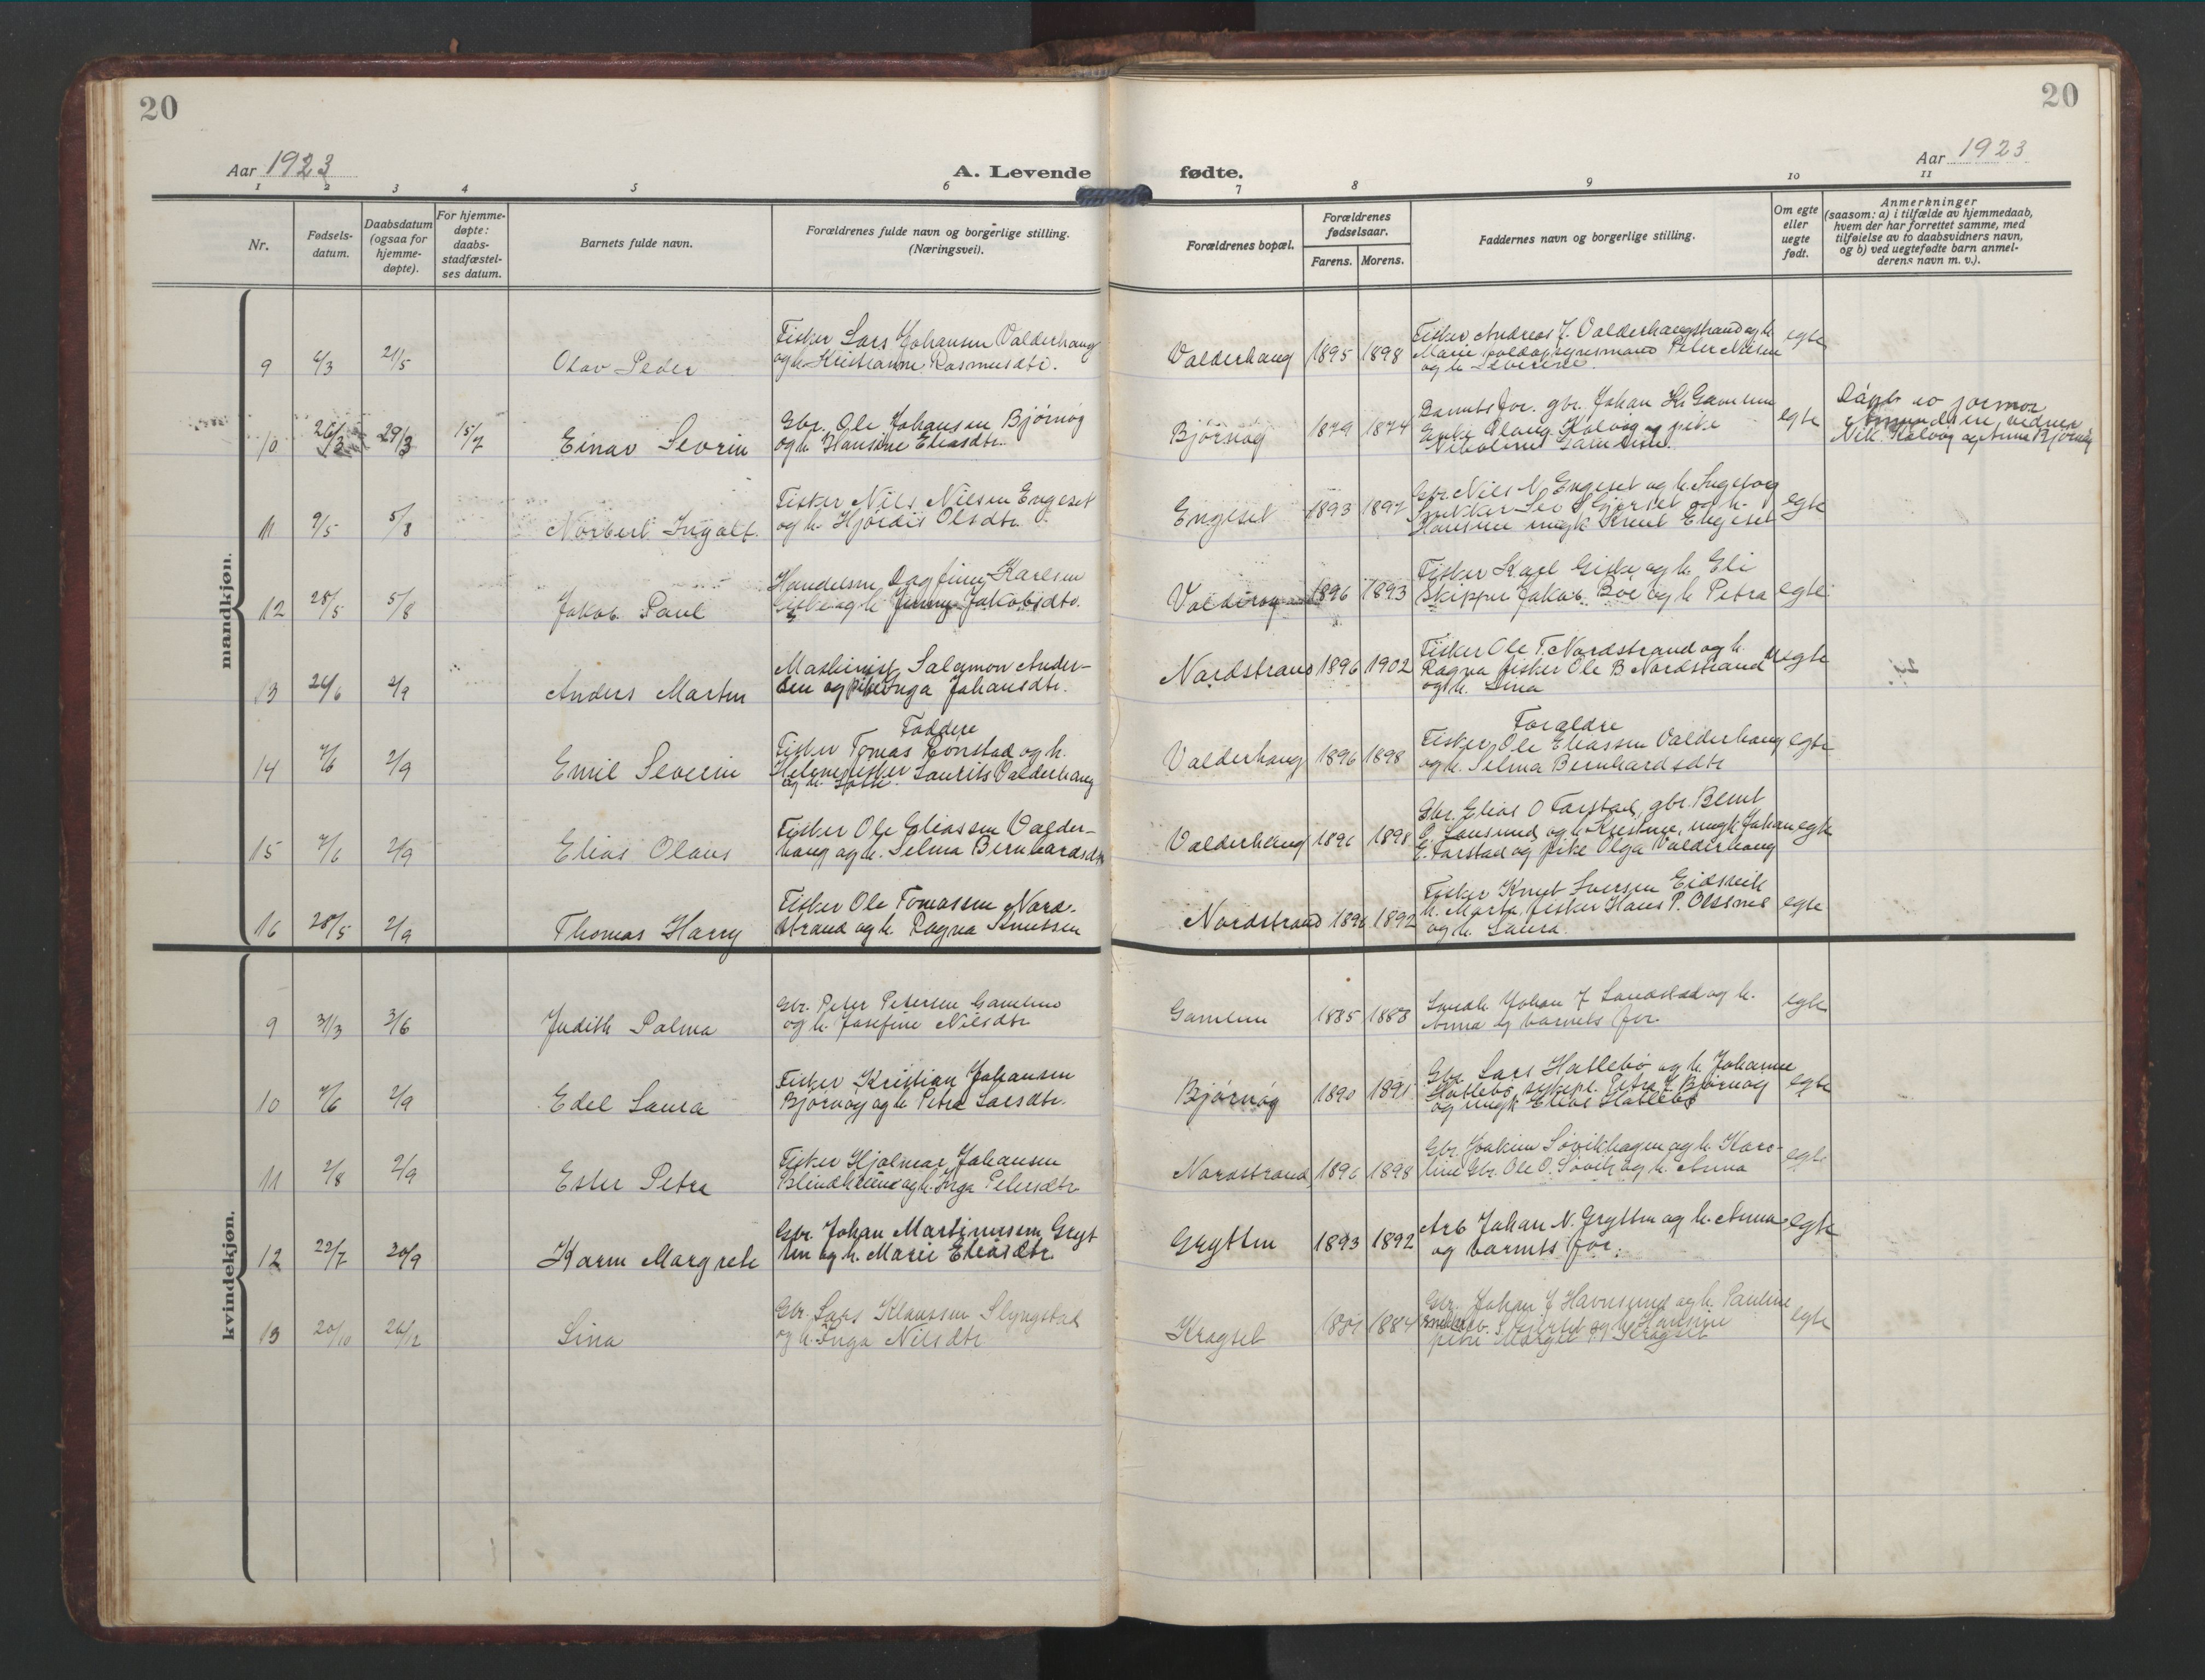 20
20
Aar 1923
A. Levende
fødte.
Aar 1923
1 2 3 4 5 6 7 8 9 10 11
Nr.
Fødsels-
datum.
Daabsdatum
(ogsaa for
hjemme-
døpte).
For hjemme-
døpte:
daabs-
stadfæstel-
ses datum.
Barnets fulde navn.
Forældrenes fulde navn og borgerlige stilling.
(Næringsvei).
Forældrenes bopæl.
Forældrenes
fødselsaar.
Farens. Morens.
Faddernes navn og borgerlige stilling.
Om egte
eller
uegte
født.
Anmerkninger
(saasom: a) i tilfælde av hjemmedaab,
hvem der har forrettet samme, med
tilføielse av to daabsvidners navn,
og b) ved uegtefødte barn anmel-
derens navn m. v.).
mandkjøn.
9 4/3 21/5 Olav Peder
Fisker Lars Johansen Valderhaug
og h. Kristianne Rasmusdtr.
Valderhaug 1895 1898
Fisker Andreas J. Valderhaugstrand og h.
Marie Peter Nilsen
og h. Severine
egte
10 26/3 29/3 15/7 Einar Sevrin
Gbr. Ole Johansen Bjørnøy
og h. Hansine Eliasdtr.
Bjørnøy 1879 1874
Barnets for. gbr. Johan Gamlem
Enke Kalvøy og pike
Nikoline Gamlem.
egte
Døpt av jormor
Amundsen, vidner
Nik. Kalvøy og Anne Bjørnøy
11 9/5 5/8 Norbert Ingolf.
Fisker Nils Nilsen Engeset
og h. Hjördis Olsdtr.
Engeset 1893 1897
Gbr. Nils N. Engeset og h. Ingeborg
Gjørset og h.
Hansine ungk. Knut Engeset
egte
12 28/5 5/8 Jakob Paul
Handelsm. Dagfinn Karlsen
Giske og h. Jenny Jakobsdtr.
Valderøy 1896 1893
Fisker Karl Giske og h. Eli
Skipper Jakob Boe og h. Petra
egte
13 24/6 2/9 Anders Martin
Maskinist Salamon Ander-
sen og pike Inga Johansdtr.
Nordstrand 1896 1902
Fisker Ole T. Nordstrand og h.
Ragna fisker Ole B Nordstrand
og h. Lina
uegte
14 7/6 2/9 Emil Severin
Faddere
Fisker Tomas Ronstad og h.
Helene fisker Laurits Valderhaug
og h. Lotte.
Valderhaug 1896 1898
Foraldre
Fisker Ole Eliassen Valderhaug
og h. Selma Bernhardsdtr
egte
15 7/6 2/9 Elias Olaus
Fisker Ole Eliassen Valder-
haug og h. Selma Bernhardsdtr
Valderhaug 1896 1898
Gbr. Elias O Farstad, gbr. Bernt
og h. Kristine, ungk. Johan
E. Farstad og pike Olga Valderhaug
egte
16 28/5 2/9 Thomas Harry
Fisker Ole Tomassen Nord-
strand og h. Ragna Knutsen
Nordstrand 1896 1892
Fisker Knut Iversen Eidsvik
h. Marta, fisker Hans P. Olssnes
og h. Laura.
egte
kvindekjøn.
9 31/3 3/6 Judith Palma
Gbr. Peter Petersen Gamlem
og h. Josefine Nilsdtr
Gamlem 1885 1883
Johan J Landstad og h.
Anna og barnets for.
egte
10 7/6 2/9 Edel Laura
Fisker Kristian Johansen
Bjørnøy og h. Petra Larsdtr.
Bjørnøy 1890 1891
Gbr. Lars Hatlebø og h. Johanne
Hatlebø, Petra L. Bjørnøy
og ungk Elias Hatlebø
egte
11 2/8 2/9 Ester Petra
Fisker Hjalmar Johansen
Blindheim og h. Inga Petersdtr
Nordstrand 1896 1898
Gbr. Joakim Søvikhagen og h. Karo-
line Gbr. Ole O. Søvik og h. Anna
egte
12 22/7 20/9 Karen Margrete
Gbr. Johan Martinussen Gryt
ten og h. Marie Eliasdtr.
Grytten 1893 1892
Arb Johan N. Grytten og h. Anna
og barnets for.
egte
13 20/10 26/12 Lina
Gbr. Lars Klaussen Slyngstad
og h. Inga Nilsdtr
Kragset 1881 1884
Gbr. Johan J Havnsund og h. Pauline
og h. Hansine
pike Margit Kragset
egte